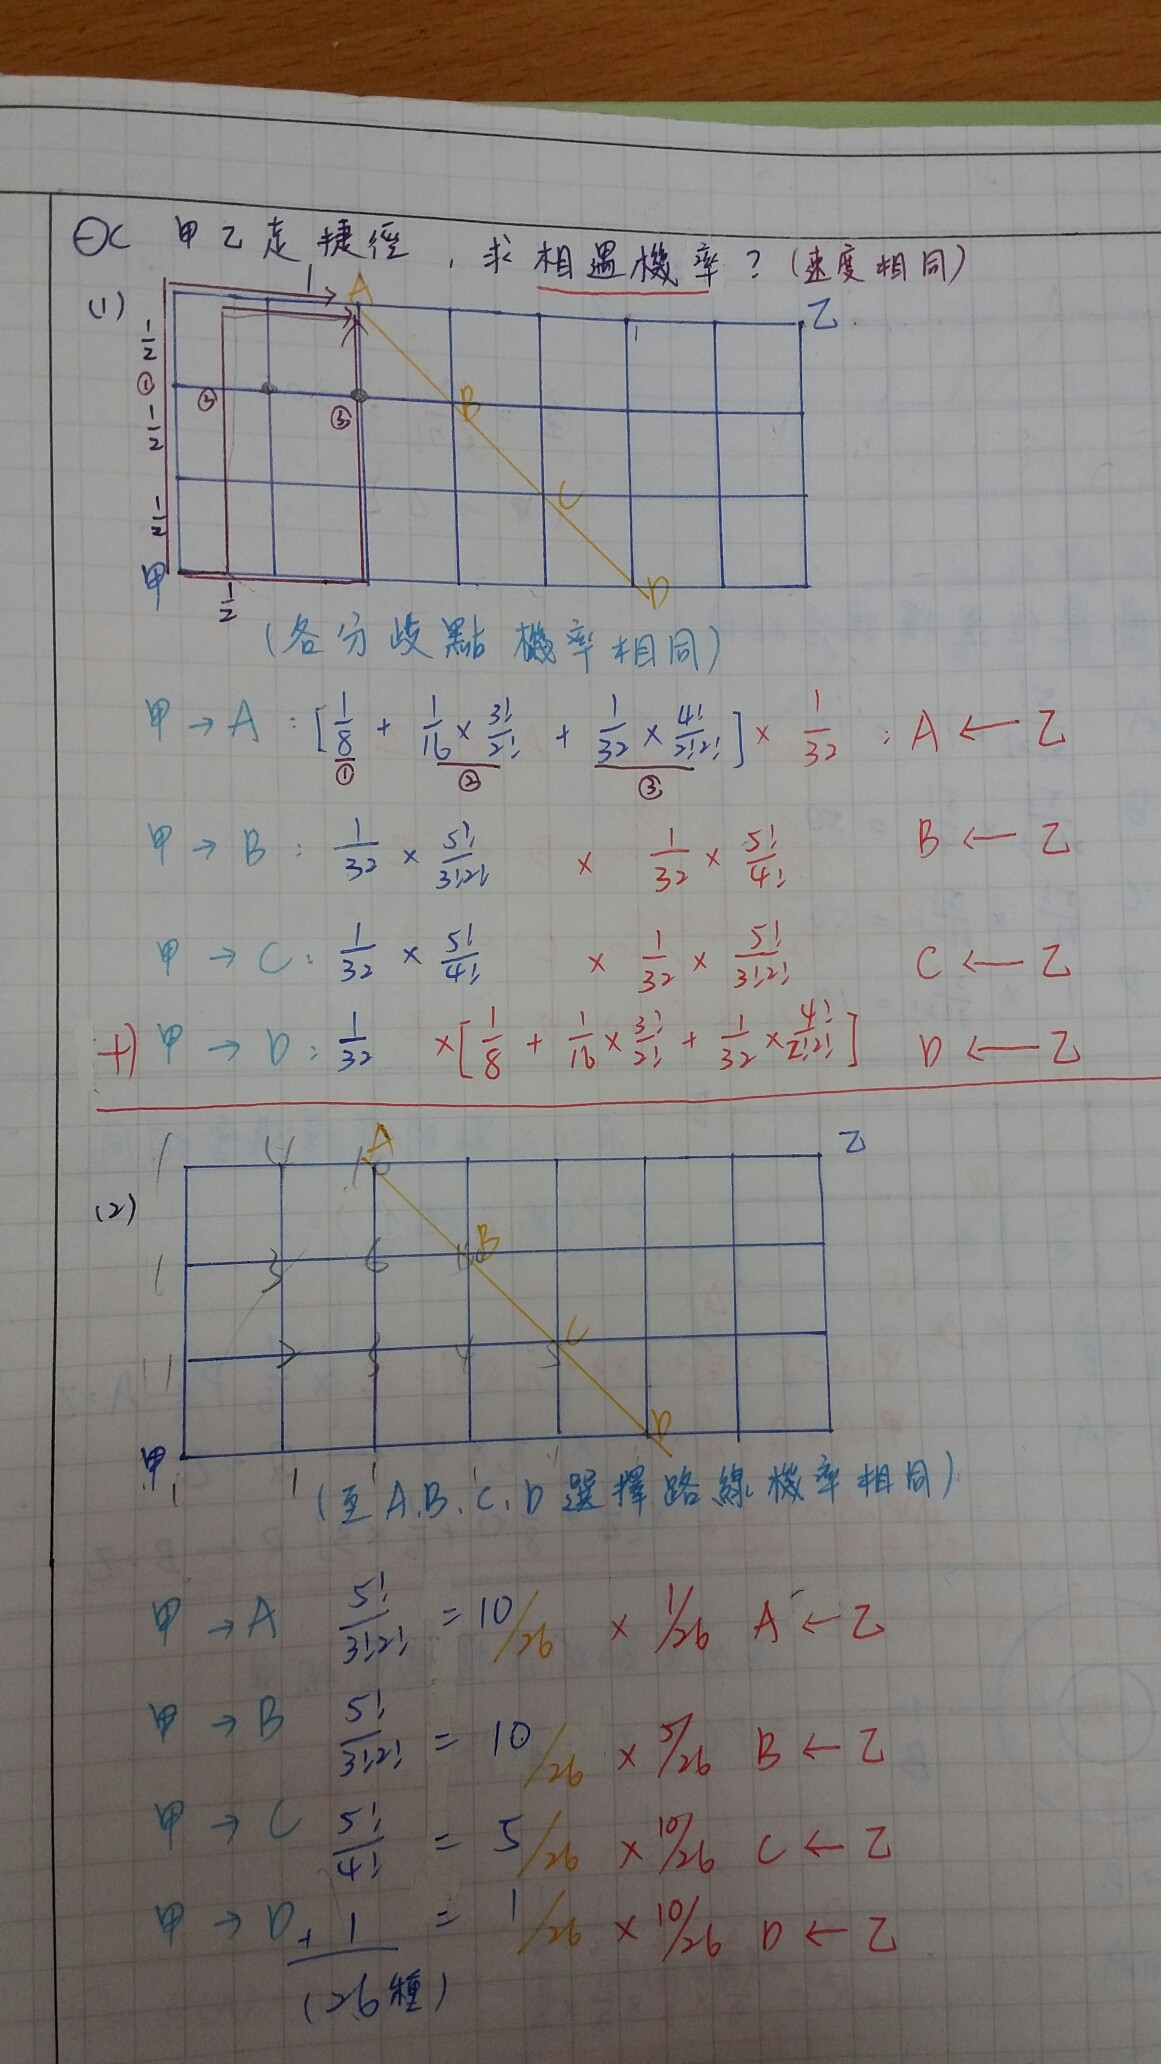 ex 甲乙走捷徑，求相遇機率？(速度相同)
(1)
1 A 乙
1/2 ① 1/2 1/2
② ③ B
C
甲 1/2 D
(各分歧點機率相同)
甲→A：[1/8 + 1/16 × 3!/2! + 1/32 × 4!/2!2!] × 1/32 ：A ← 乙
① ② ③
甲→B：1/32 × 5!/3!2! × 1/32 × 5!/4! B ← 乙
甲→C：1/32 × 5!/4! × 1/32 × 5!/3!2! C ← 乙
+) 甲→D：1/32 × [1/8 + 1/16 × 3!/2! + 1/32 × 4!/2!2!] D ← 乙
1 4 A 10 乙
(2)
1 3 6 10 B
1 2 3 4 5 C
甲 D
1 1 1 1 1
(至A.B.C.D選擇路線機率相同)
甲→A 5!/3!2! = 10/26 × 1/26 A ← 乙
甲→B 5!/3!2! = 10/26 × 5/26 B ← 乙
甲→C 5!/4! = 5/26 × 10/26 C ← 乙
甲→D + 1 = 1/26 × 10/26 D ← 乙
(26種)